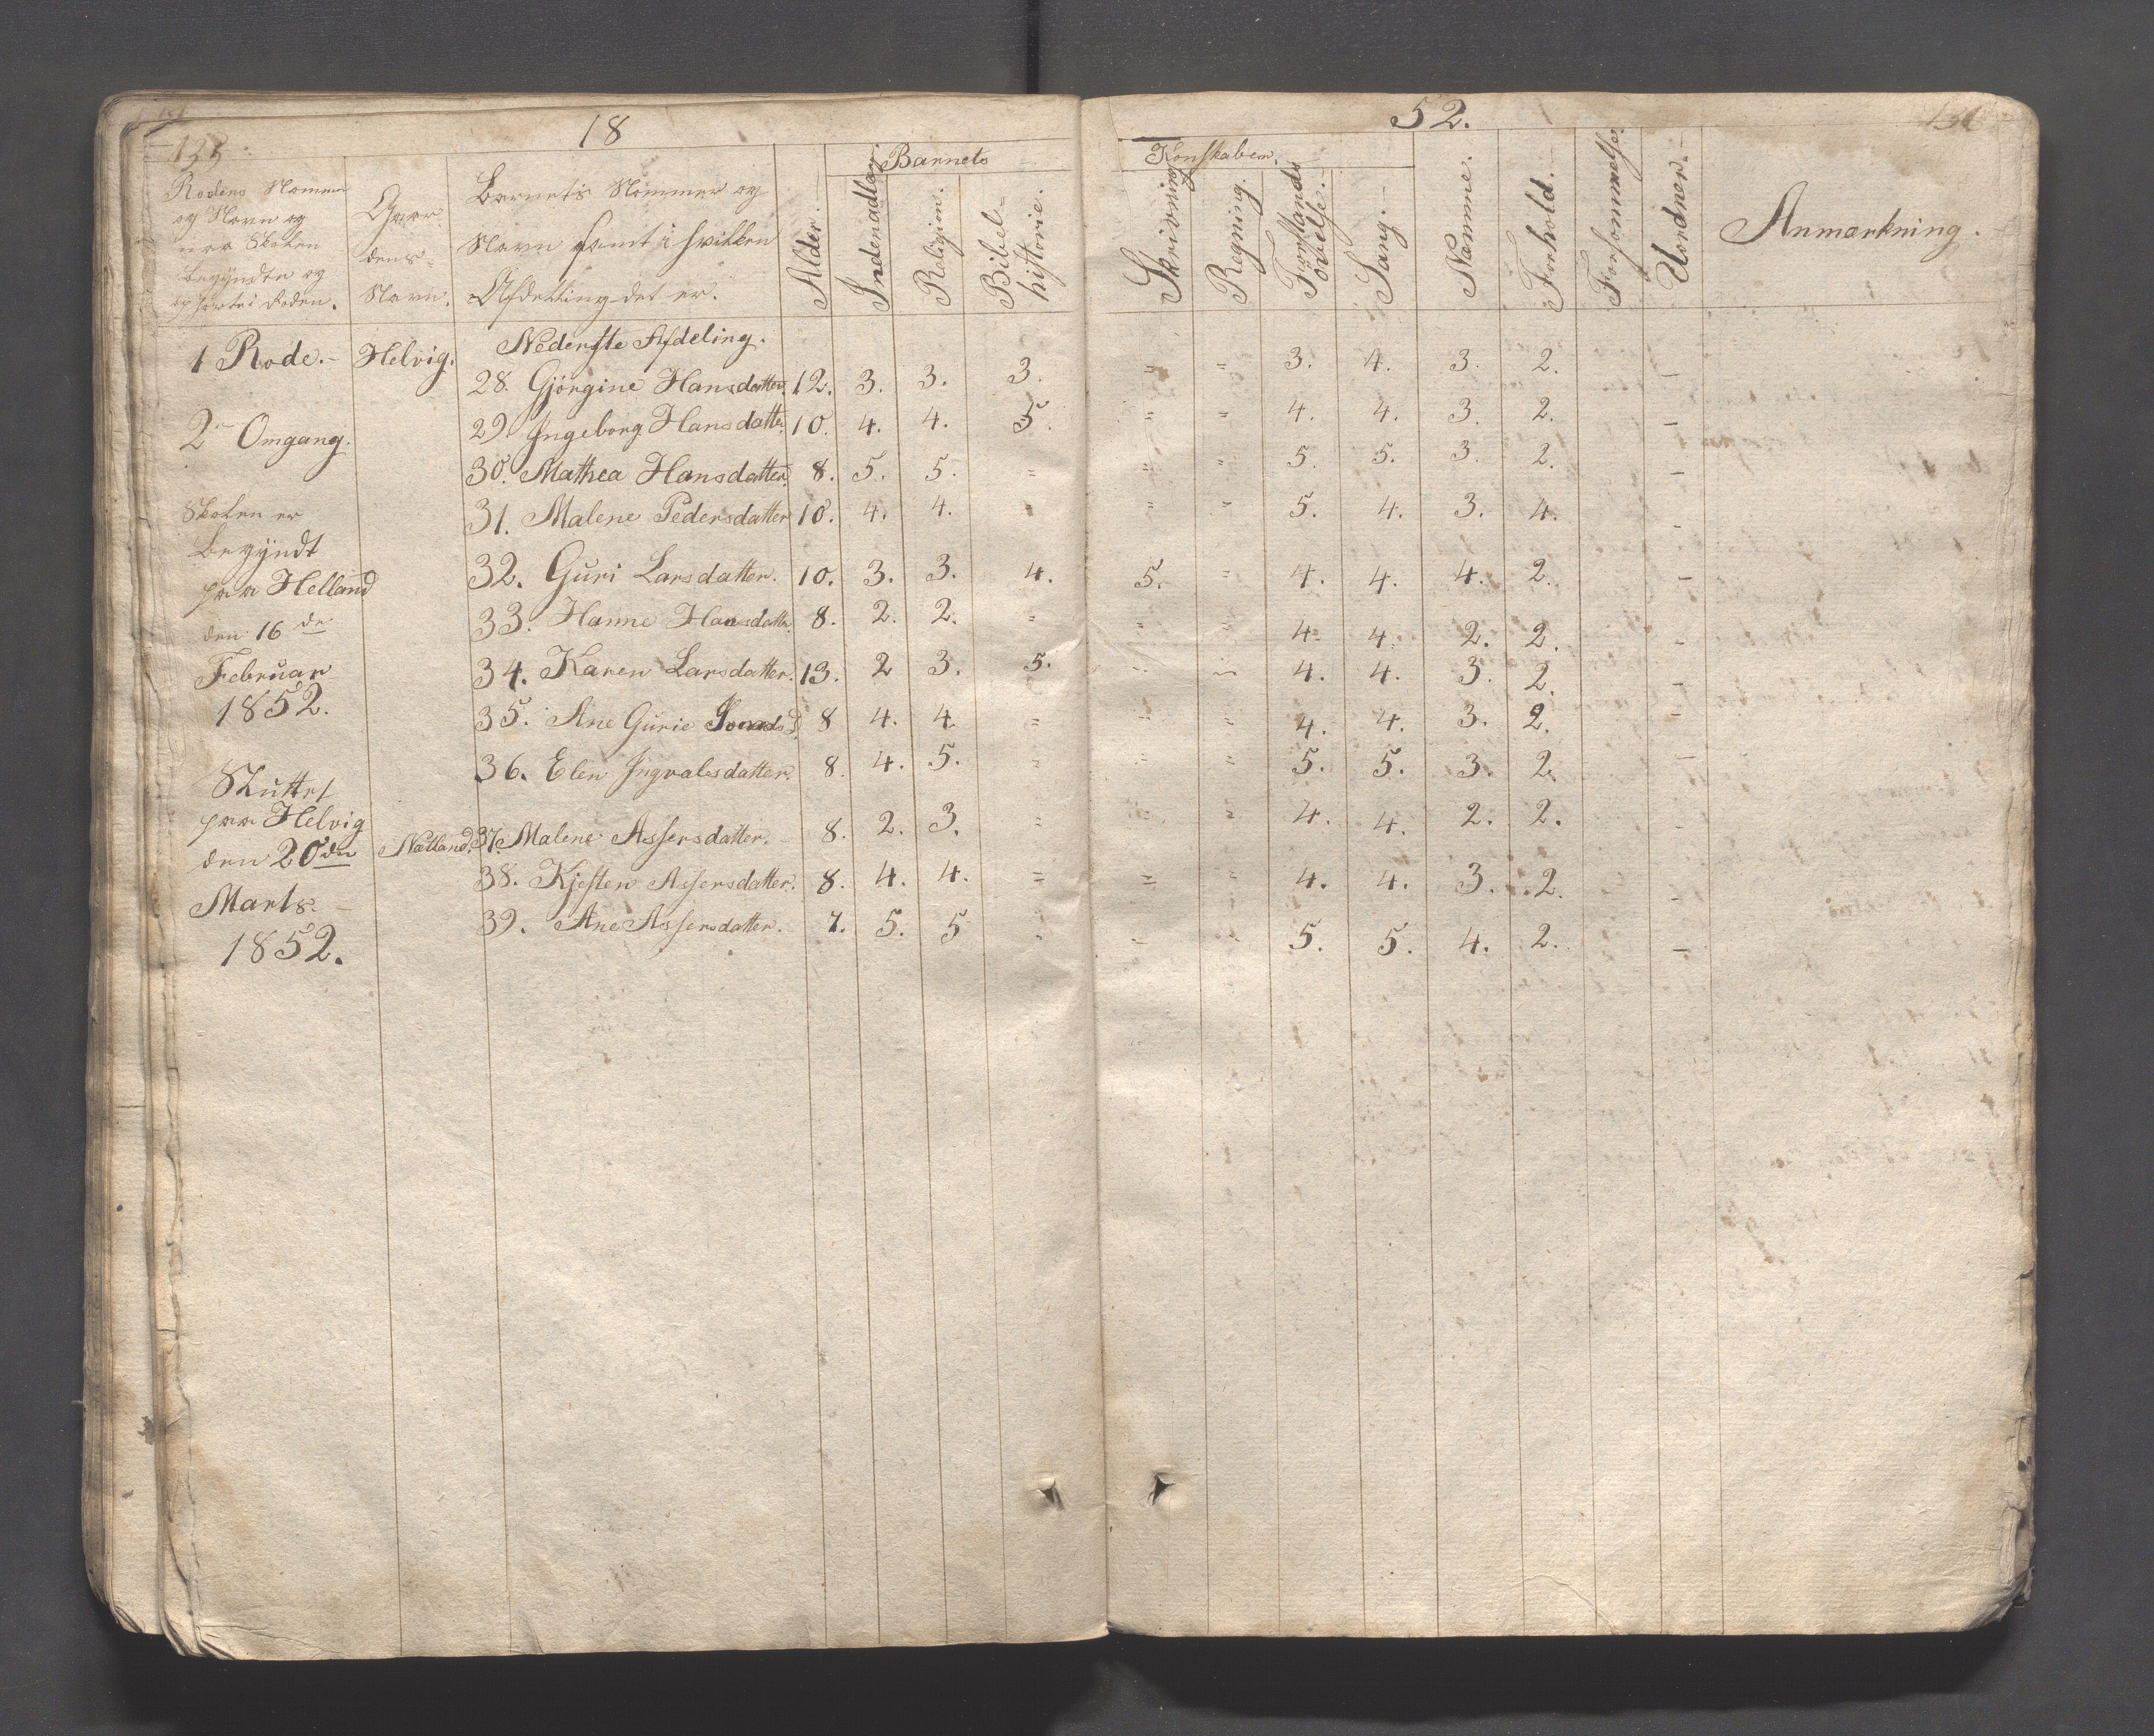 18 52.
135
Barnets Konskaber.
Rodens Nommer
og Navn og
naar Skolen
begyndte og
ophörte i Roden.
Gaar
dens
Navn.
Barnets Nommer og
Navn samt i hvilken
Afdeling det er.
Alder.
Indenadlæs.
Religion.
Bibel-
historie.
Skrivning
Regning.
Forstands
övelse.
Sang.
Nemme.
Forhold.
Forsømmelse.
Uordner.
Anmærkning.
Nederste Afdeling.
1 Rode. Helvig.
28. Gjörgine Hansdatter. 12. 3. 3. 3. " " 3. 4. 3. 2. –
2 Omgang.
29. Ingeborg Hansdatte. 10. 4. 4. 5. " " 4. 4. 3. 2. –
30. Mathea Hansdatter. 8. 5. 5. " " " 5. 5. 3. 2. –
Skolen er
31. Malene Pedersdatter 10. 4. 4. " " " 5. 4. 3. 4. –
begyndt
paa Helland
32. Guri Larsdatter. 10. 3. 3. 4. 5. " 4. 4. 4. 2. –
den 16 de
33. Hanne Hansdatte. 8. 2. 2. " " " 4. 4. 2. 2. –
Februar
34. Karen Larsdatter. 13. 2 3. 5. " " 4. 4. 3. 2. –
1852.
35. Ane Gurie 8 4. 4 " " " 4. 4. 3. 2. –
36. Elen Ingvalesdatter. 8. 4. 5. " " " 5. 5. 3. 2. –
Sluttet
paa Helvig
den 20de
Nætland. 37. Malene Assersdatter. 8. 2. 3. " " " 4. 4. 2. 2. –
38. Kjesten Assersdatter. 8. 4. 4. " " " 4. 4. 3. 2. –
Marts.
39. Ane Assersdatter. 7. 5. 5 " " " 5. 5. 4. 2. –
1852.